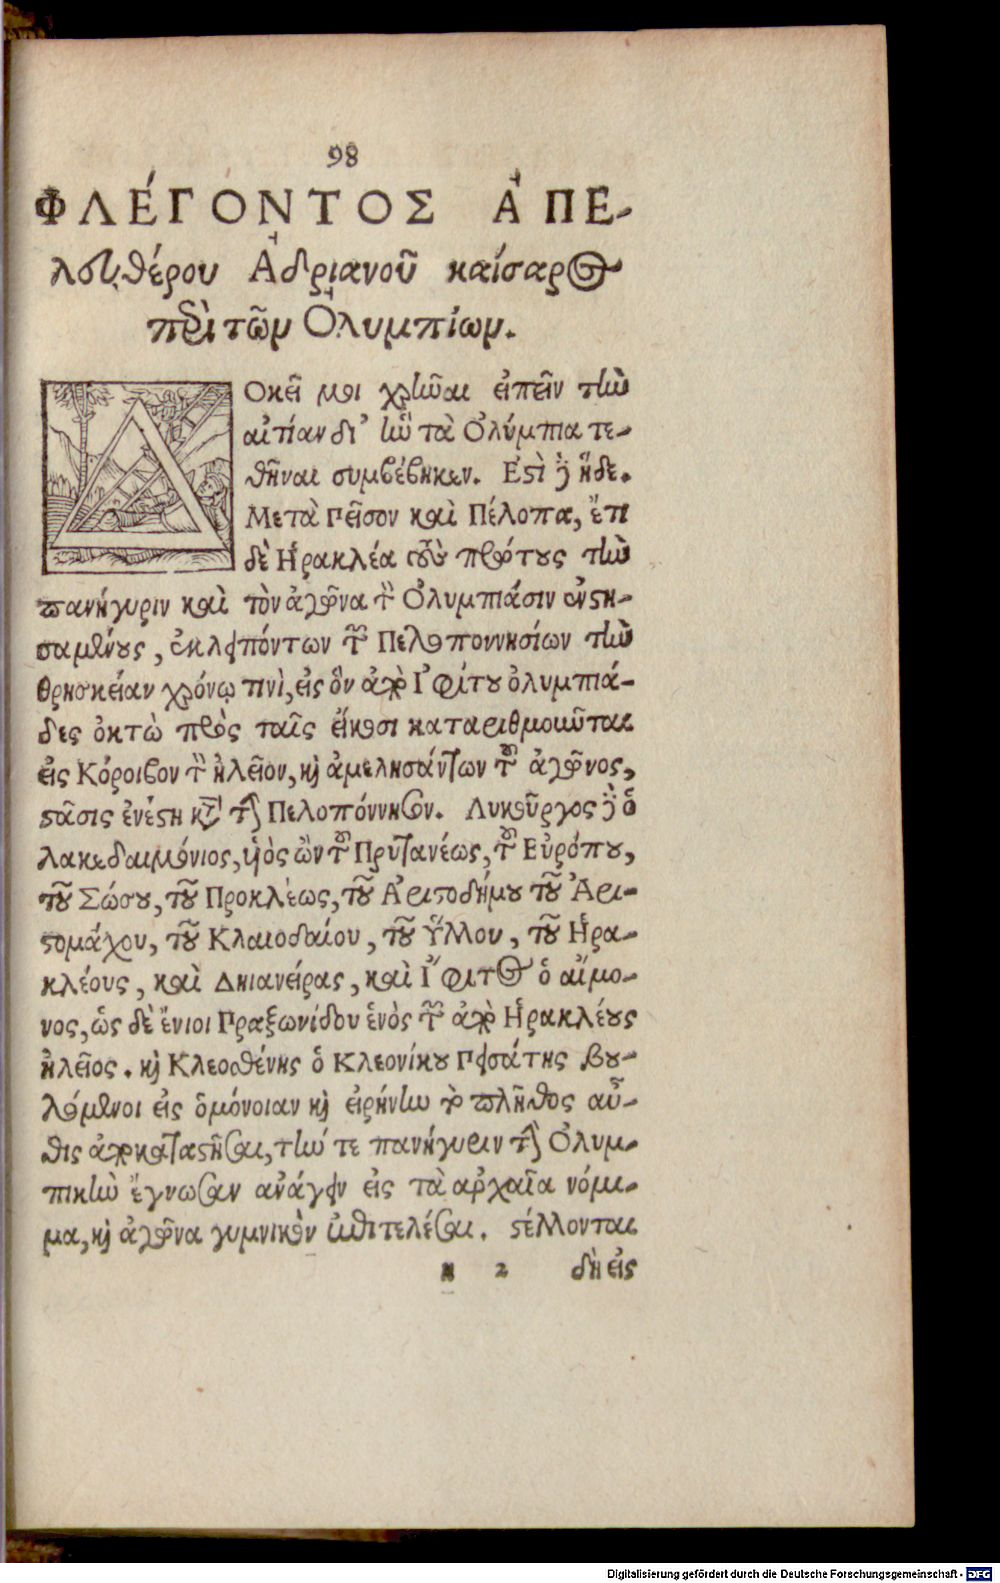 98
ΦΛΈΓΟΝΤΟΣ ἈΠΕ-
λευθέρου Ἀδριανοῦ καίσαρος
περὶ τῶν Ὀλυμπίων.
ΔΟκεῖ μοι χρῆναι εἰπεῖν τὴν
αἰτίαν δι' ἣν τὰ Ὀλύμπια τε-
θῆναι συμβέβηκεν. Ἔστὶ δὲ ἥδε.
Μετὰ Πεῖσον καὶ Πέλοπα, ἔτι
δὲ Ἡρακλέα τοὺς πρώτους τὴν
πανήγυριν καὶ τὸν ἀγῶνα τὸν Ὀλυμπιάσιν ἐνστη-
σαμένους, ἐκλειπόντων τῶν Πελοποννησίων τὴν
θρησκείαν χρόνῳ τινὶ, εἰς ὃν ἀπὸ Ἰφίτου ὀλυμπιά-
δες ὀκτὼ πρὸς ταῖς εἴκοσι καταριθμοῦνται
εἰς Κόροιβον τὸν ἠλεῖον, καὶ ἀμελησάντων τοῦ ἀγῶνος,
στάσις ἐνέστη κατὰ τὴν Πελοπόννησον. Λυκοῦργος δὲ ὁ
λακεδαιμόνιος, υἱὸς ὢν τοῦ Πρυτανέως, τοῦ Εὐρόπου,
τοῦ Σώσου, τοῦ Προκλέως, τοῦ Ἀριστοδήμου τοῦ Ἀρι-
στομάχου, τοῦ Κλαιοδαίου, τοῦ Ὕλλου, τοῦ Ἡρα-
κλέους, καὶ Δηιανείρας, καὶ Ἴφιτος ὁ αἵμο-
νος, ὡς δὲ ἔνιοι Πραξωνίδου ἑνὸς τῶν ἀπὸ Ἡρακλέους
ἠλεῖος. καὶ Κλεοσθένης ὁ Κλεονίκου Πεισάτης βου-
λόμενοι εἰς ὁμόνοιαν καὶ εἰρήνην τὸ πλῆθος αὖ-
θις ἀποκαταστῆσαι, τήν τε πανήγυριν τὴν Ὀλυμ-
πικὴν ἔγνωσαν ἀνάγειν εἰς τὰ ἀρχαῖα νόμι-
μα, καὶ ἀγῶνα γυμνικὸν ἐπιτελέσαι. στέλλονται
n 2 δὴ εἰς
Digitalisierung gefördert durch die Deutsche Forschungsgemeinschaft - DFG